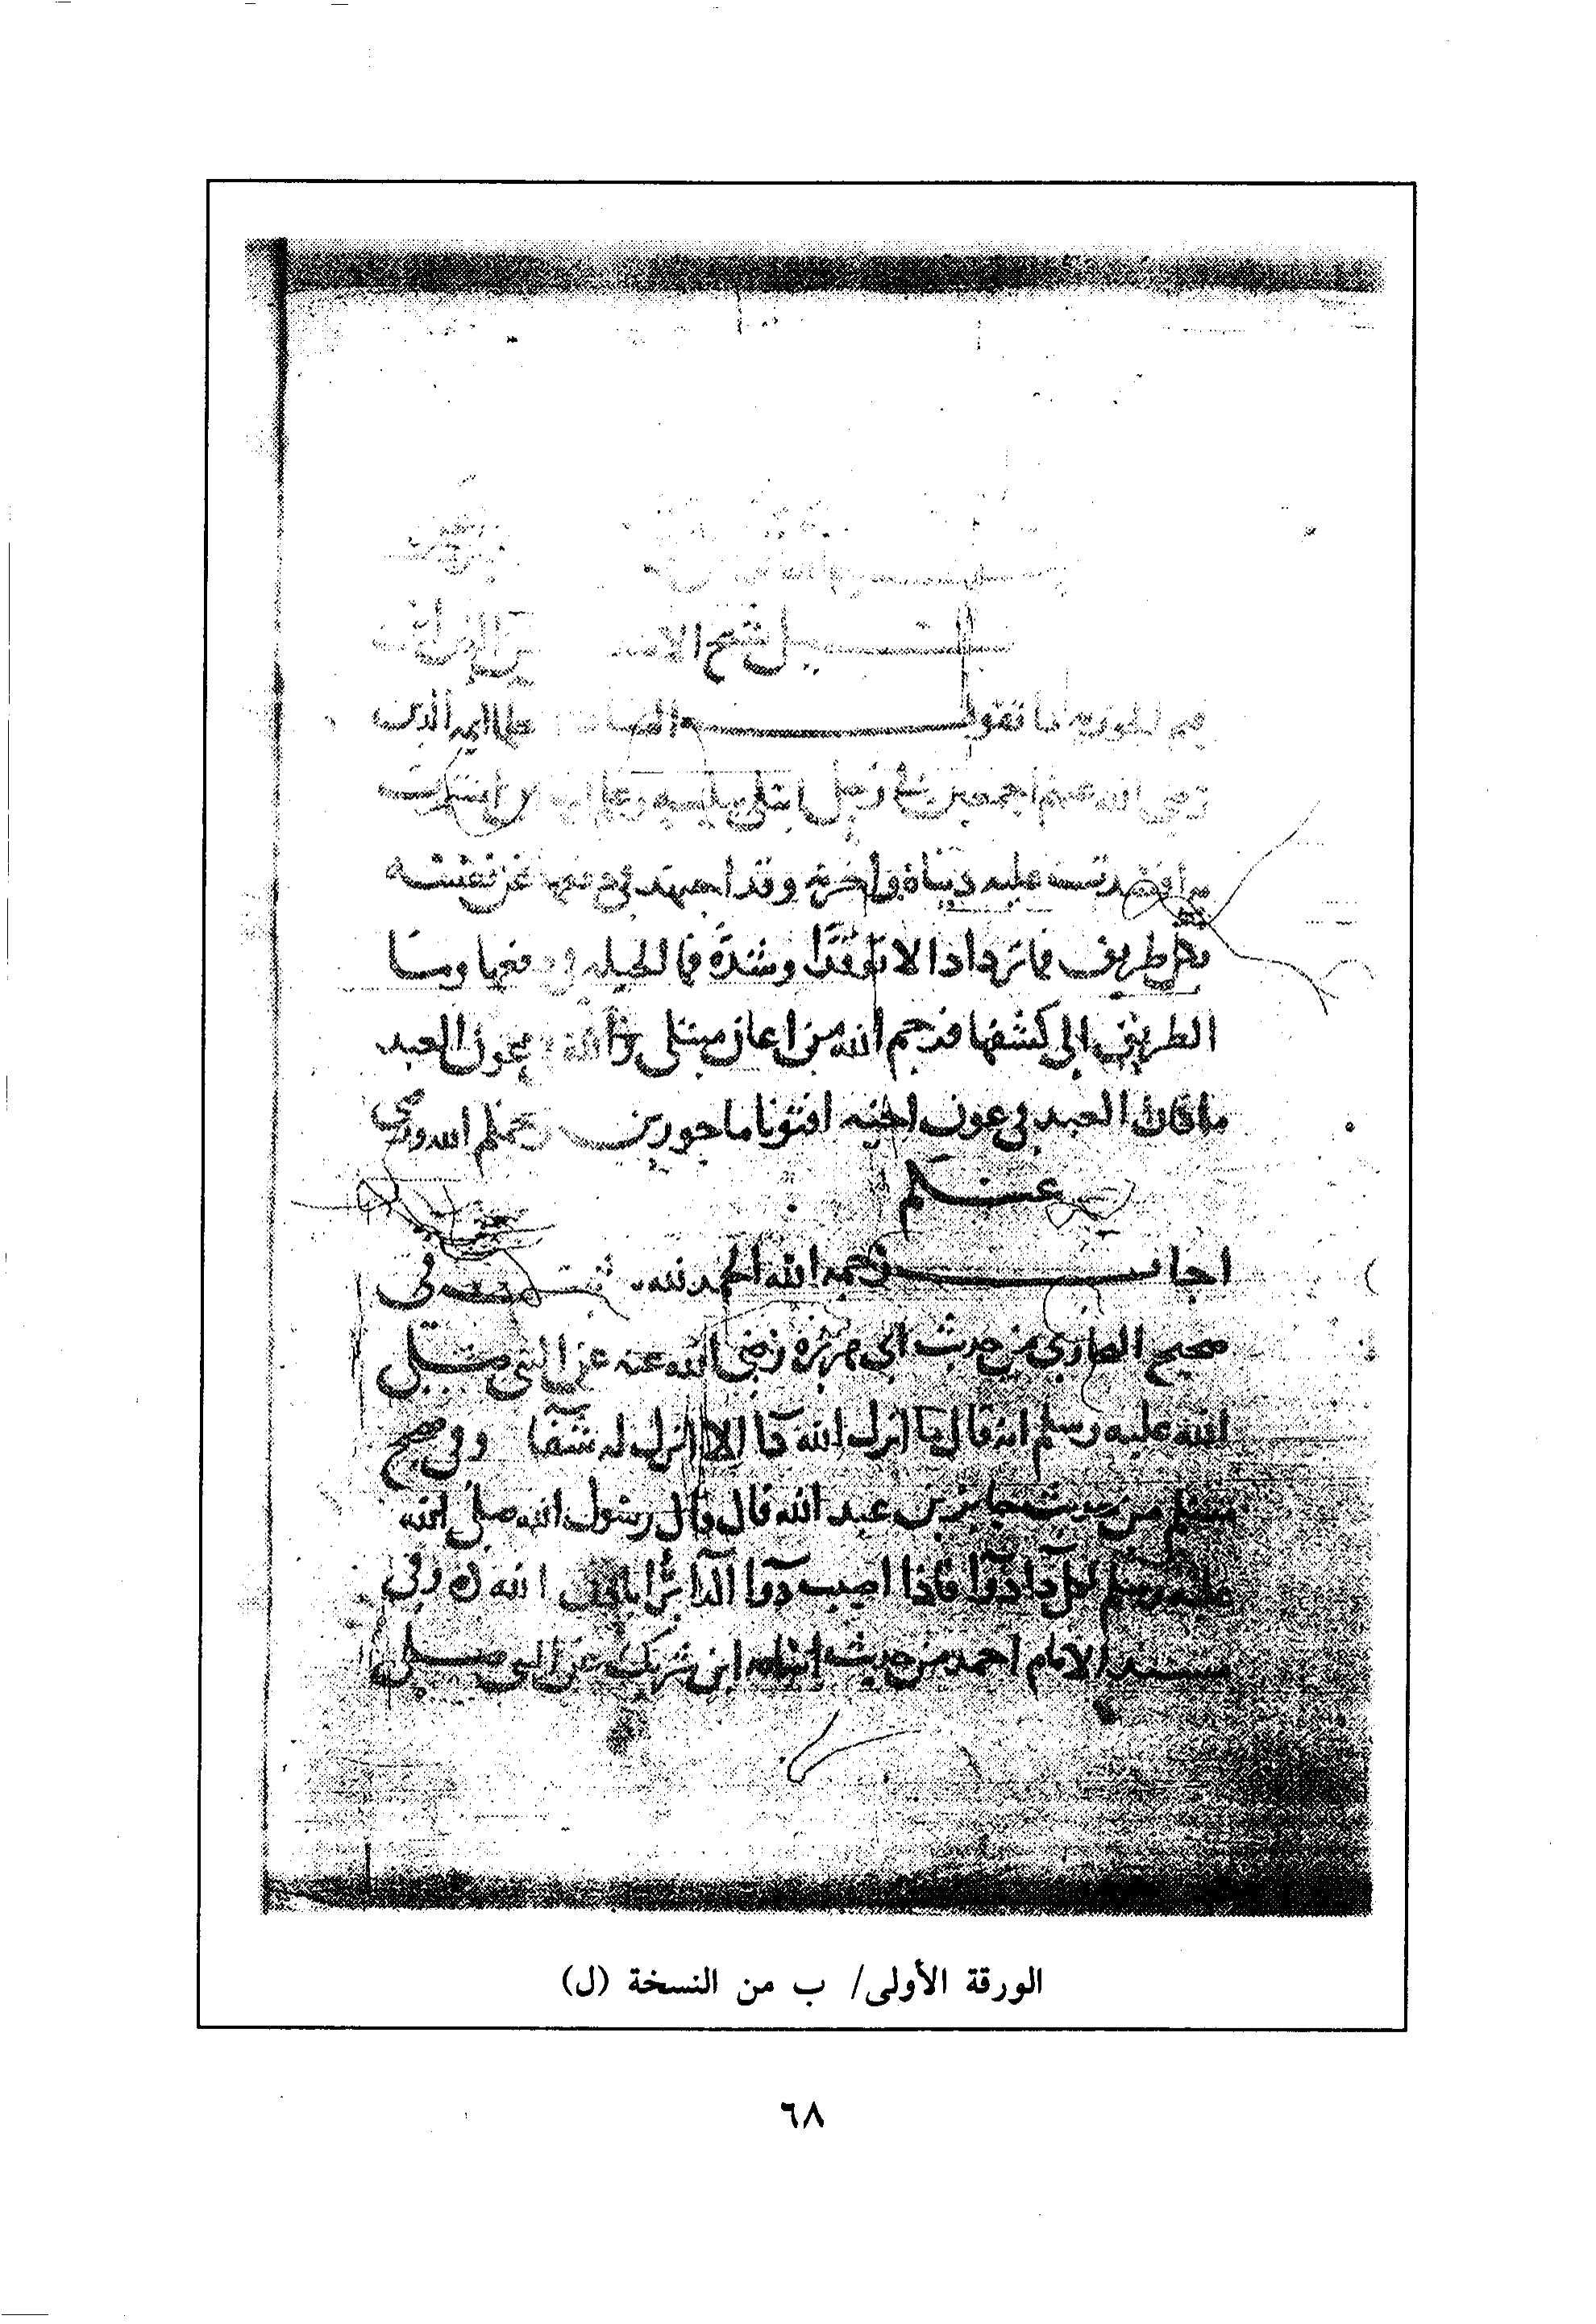 سئل شيخ الاسلام
قيم الجوزيه ما تقول السادة العلما ايمه الدين
رضي الله عنهم اجمعين في رجل ابتلي ببليه وعلم انها ان استمرت
به افسدت عليه دنياه واخرته وقد اجتهد في دفعها عن نفسه
بكل طريق فما تزداد الا توقدا وشدة فما الحيله في دفعها وما
الطريق الى كشفها فرحم الله من اعان مبتلى والله في عون العبد
ما كان العبد في عون اخيه افتونا ماجورين رحمكم الله ورضي
عنكم
اجاب رحمه الله الحمد لله ثبت في
صحيح البخاري من حديث ابي هريره رضي الله عنه عن النبي صلى
الله عليه وسلم انه قال ما انزل الله دآ إلا انزل له شفآ وفي صحيح
مسلم من حديث جابر بن عبد الله قال قال رسول الله صلى الله
عليه وسلم لكل دا دوآ فاذا اصيب دوآ الدآ برا باذن الله وفي
مسند الامام احمد من حديث اسامه ابن شريك عن النبي صلى
الورقة الأولى/ ب من النسخة (ل)
٦٨